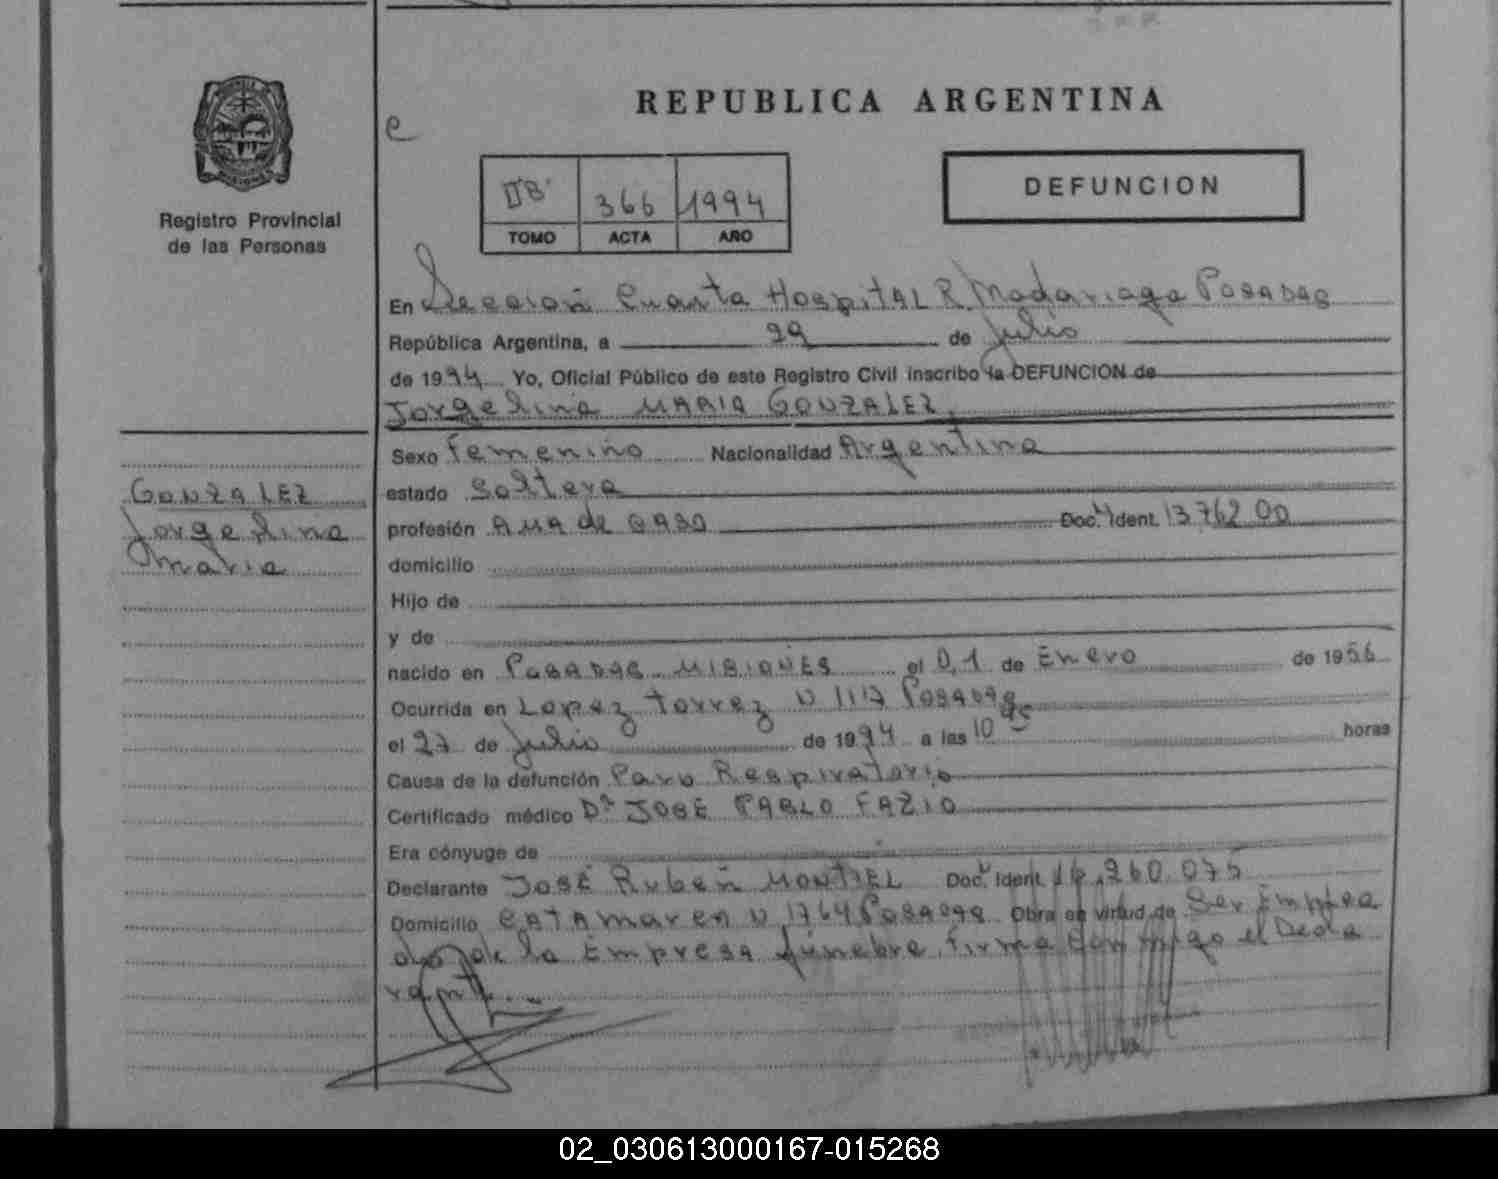 REPUBLICA ARGENTINA
e
Registro Provincial
de las Personas
366 1994
TOMO ACTA AÑO
DEFUNCION
En Sección Cuarta HospitAL R. Madariaga POSADAS
República Argentina, a 29 de Julio
de 1994 Yo, Oficial Público de este Registro Civil inscribo la DEFUNCION de
Jorgelina MARIA GONZALEZ
Sexo Femenino Nacionalidad Argentina
estado Soltera
profesión AMA de CASA Doc. Ident. 13.762.00
domicilio
Hijo de
y de
nacido en POSADAS MISIONES el 01 de Enero de 1956
Ocurrida en Lopez Torrez N 1117 POSADAS
el 27 de Julio de 1994 a las 10 45 horas
Causa de la defunción Paro Respiratorio
Certificado médico Dr JOSE PABLO FAZIO
Era cónyuge de
Declarante JOSÉ Rubén MONTIEL Doc. Ident. 16.260.075
Domicilio CATAmarca N 1764 POSADAS Obra en virtud de Ser Emplea
do de la Empresa fúnebre. Firma Con migo el Decla
rante.
GONZALEZ
Jorgelina
Maria
02_030613000167-015268